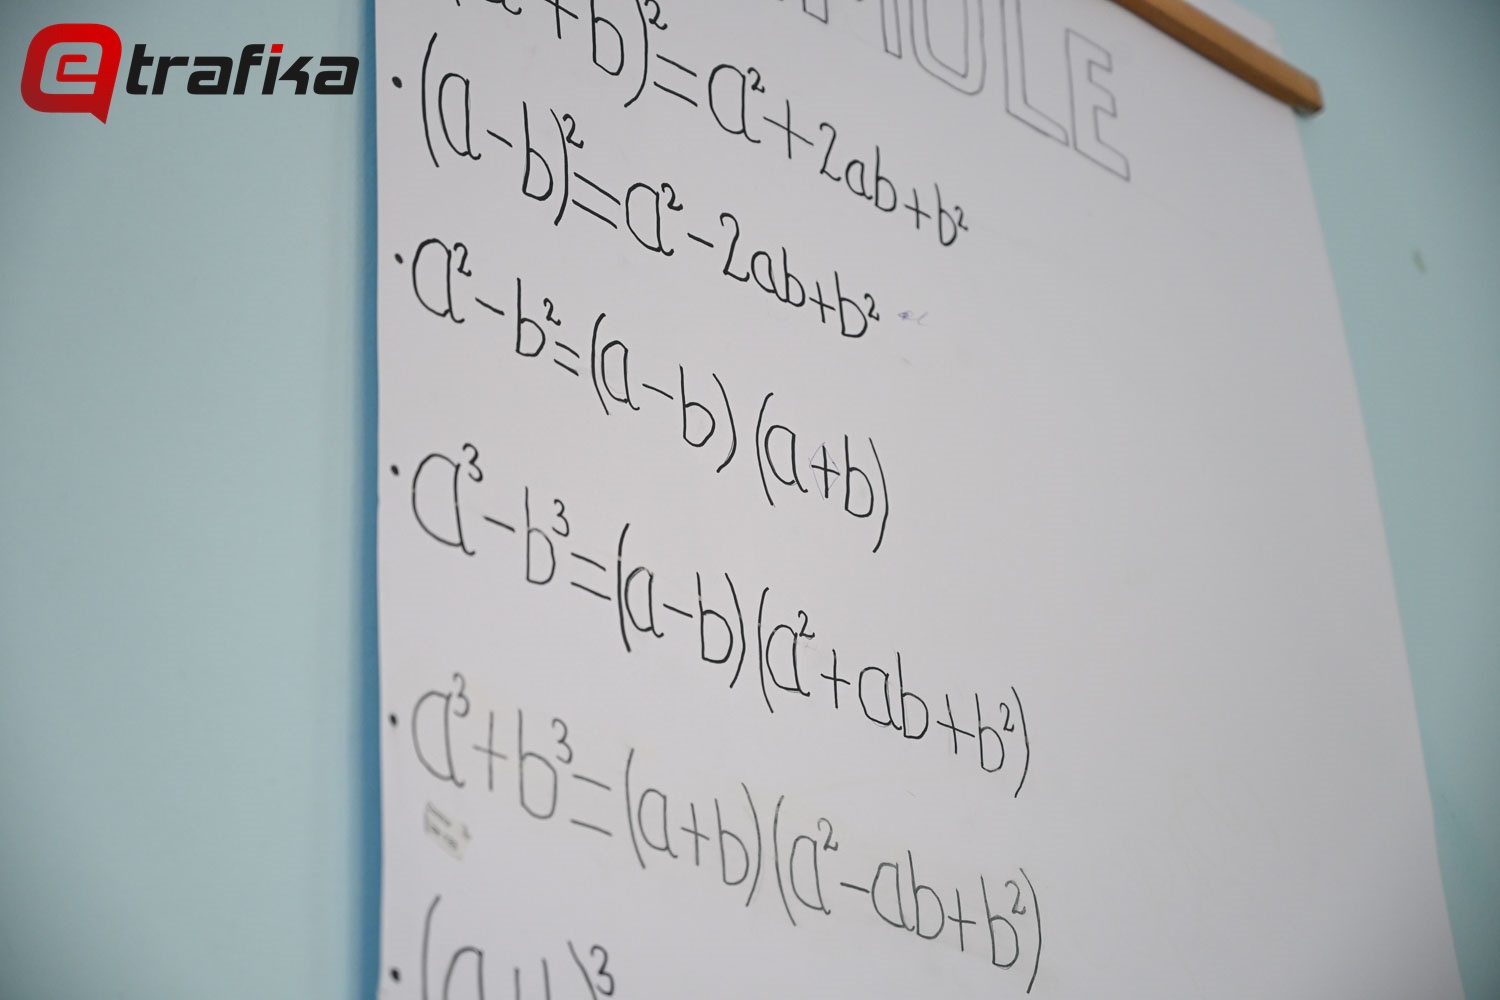 etrafika
MULE
a+b)²=a²+2ab+b²
•(a-b)²=a²-2ab+b²
•a²-b²=(a-b)(a+b)
•a³-b³=(a-b)(a²+ab+b²)
•a³+b³=(a+b)(a²-ab+b²)